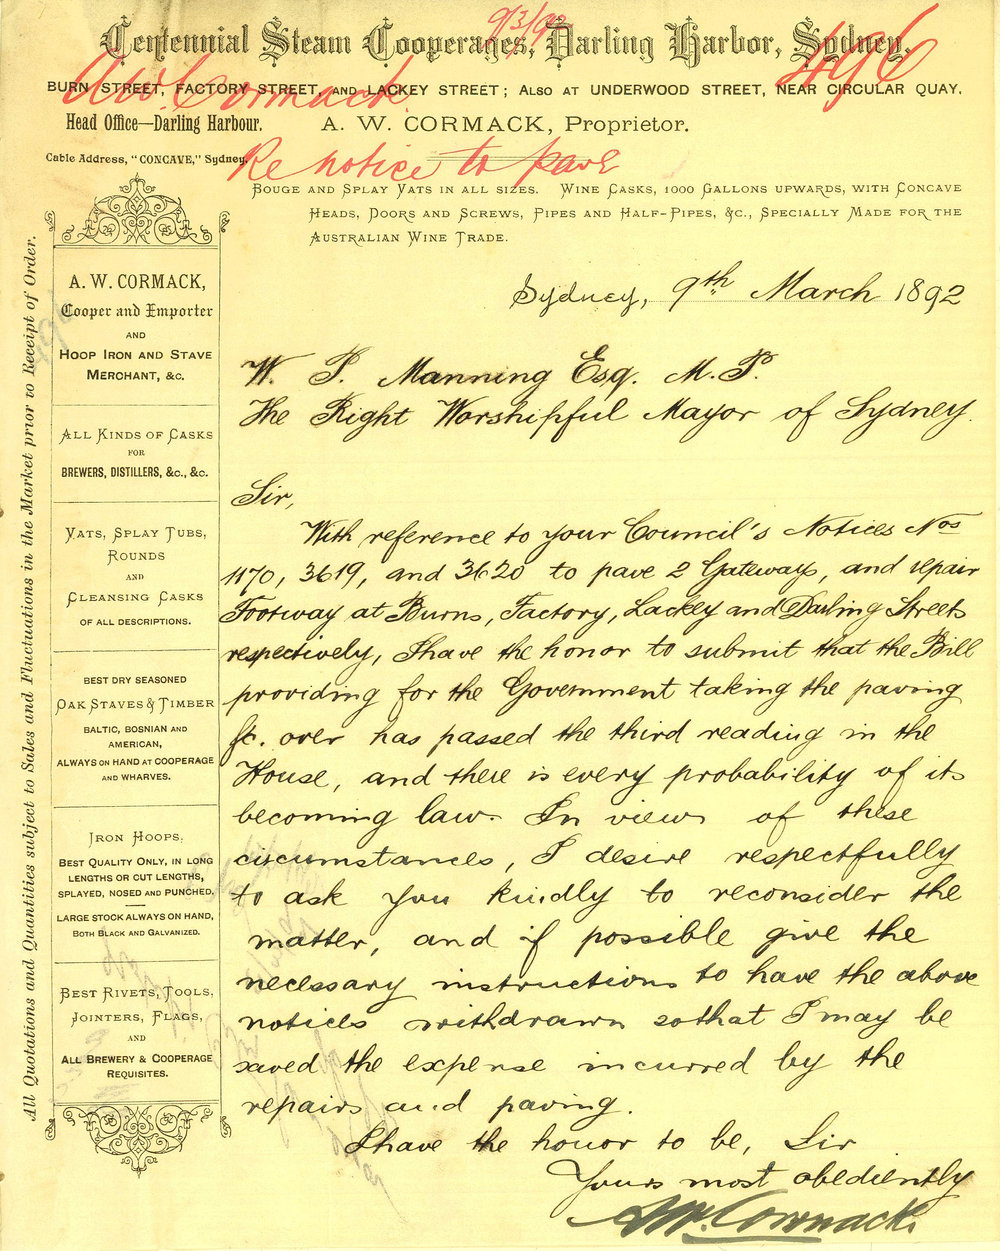 9/3/92
Centennial Steam Cooperages, Darling Harbor, Sydney.
496
A W Cormack
BURN STREET, FACTORY STREET, AND LACKEY STREET; ALSO AT UNDERWOOD STREET, NEAR CIRCULAR QUAY.
Head Office—Darling Harbour.
A. W. CORMACK, Proprietor.
Cable Address, "CONCAVE," Sydney.
Re notice to pave
BOUGE AND SPLAY VATS IN ALL SIZES. WINE CASKS, 1000 GALLONS UPWARDS, WITH CONCAVE
HEADS, DOORS AND SCREWS, PIPES AND HALF-PIPES, &C., SPECIALLY MADE FOR THE
AUSTRALIAN WINE TRADE.
All Quotations and Quantities subject to Sales and Fluctuations in the Market prior to Receipt of Order.
A. W. CORMACK,
Cooper and Importer
AND
HOOP IRON AND STAVE
MERCHANT, &C.
ALL KINDS OF CASKS
FOR
BREWERS, DISTILLERS, &C., &C.
VATS, SPLAY TUBS,
ROUNDS
AND
CLEANSING CASKS
OF ALL DESCRIPTIONS.
BEST DRY SEASONED
OAK STAVES & TIMBER
BALTIC, BOSNIAN AND
AMERICAN,
ALWAYS ON HAND AT COOPERAGE
AND WHARVES.
IRON HOOPS.
BEST QUALITY ONLY, IN LONG
LENGTHS OR CUT LENGTHS,
SPLAYED, NOSED AND PUNCHED.
LARGE STOCK ALWAYS ON HAND,
BOTH BLACK AND GALVANIZED.
BEST RIVETS, TOOLS,
JOINTERS, FLAGS,
AND
ALL BREWERY & COOPERAGE
REQUISITES.
Sydney, 9th March 1892
W. P. Manning Esq. M.P.
The Right Worshipful Mayor of Sydney.
Sir,
With reference to your Council's Notices Nos
1170, 3619, and 3620 to pave 2 Gateways, and repair
Footway at Burns, Factory, Lackey and Darling Streets
respectively, I have the honor to submit that the Bill
providing for the Government taking the paving
&c. over has passed the third reading in the
House, and there is every probability of its
becoming law. In view of these
circumstances, I desire respectfully
to ask you kindly to reconsider the
matter, and if possible give the
necessary instructions to have the above
notices withdrawn so that I may be
saved the expense incurred by the
repairs and paving.
I have the honor to be, Sir
Yours most obediently
A W. Cormack